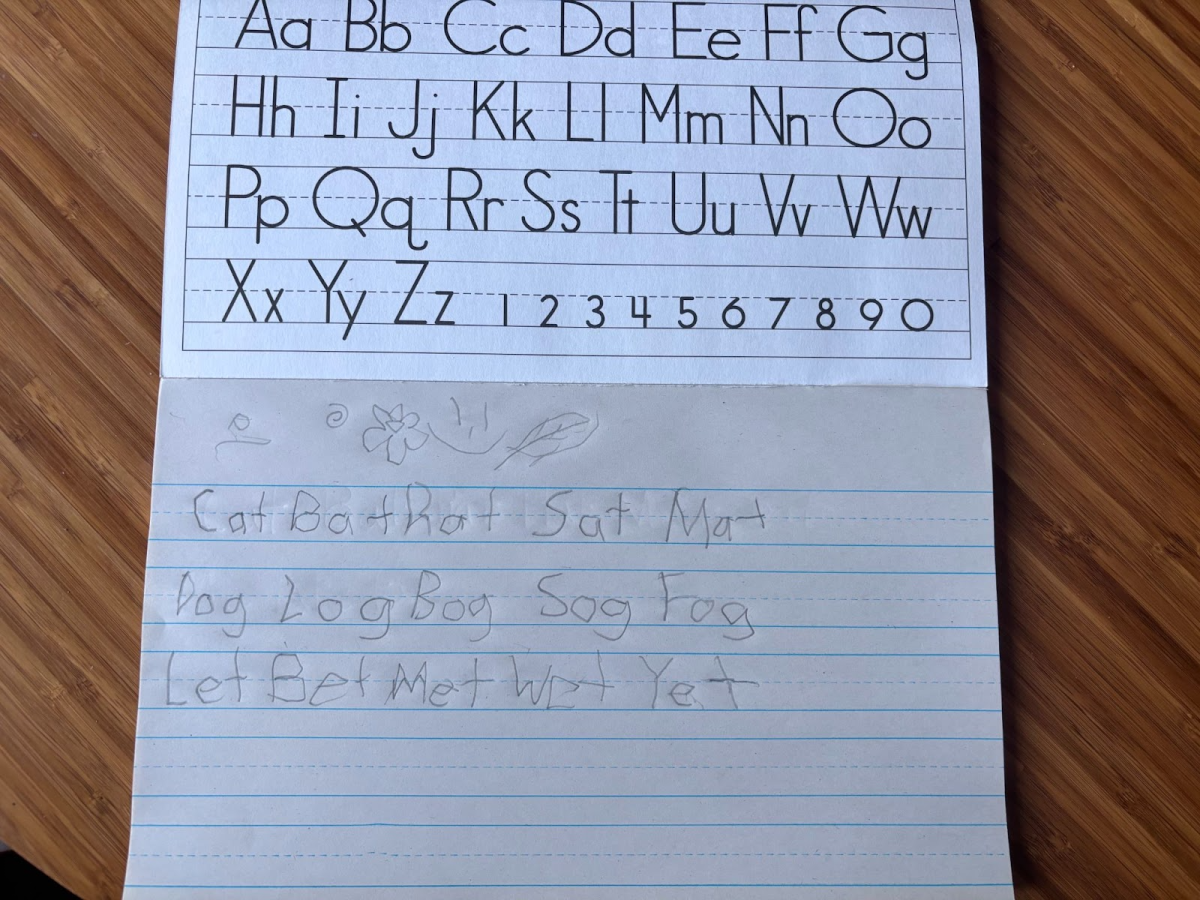 Aa Bb Cc Dd Ee Ff Gg
Hh Ii Jj Kk Ll Mm Nn Oo
Pp Qq Rr Ss Tt Uu Vv Ww
Xx Yy Zz 1 2 3 4 5 6 7 8 9 0
Cat Bat Rat Sat Mat
Dog Log Bog Sog Fog
Let Bet Met Wet Yet